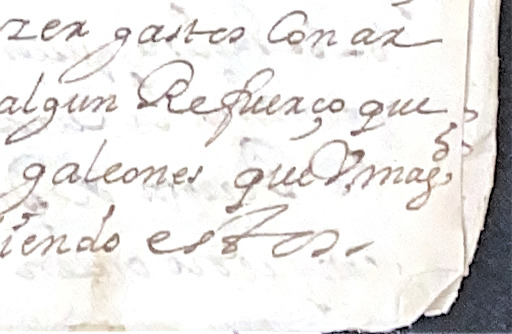 zer gastos Con ar
algun Refuerço que
galeones que V.mag.
iendo estos